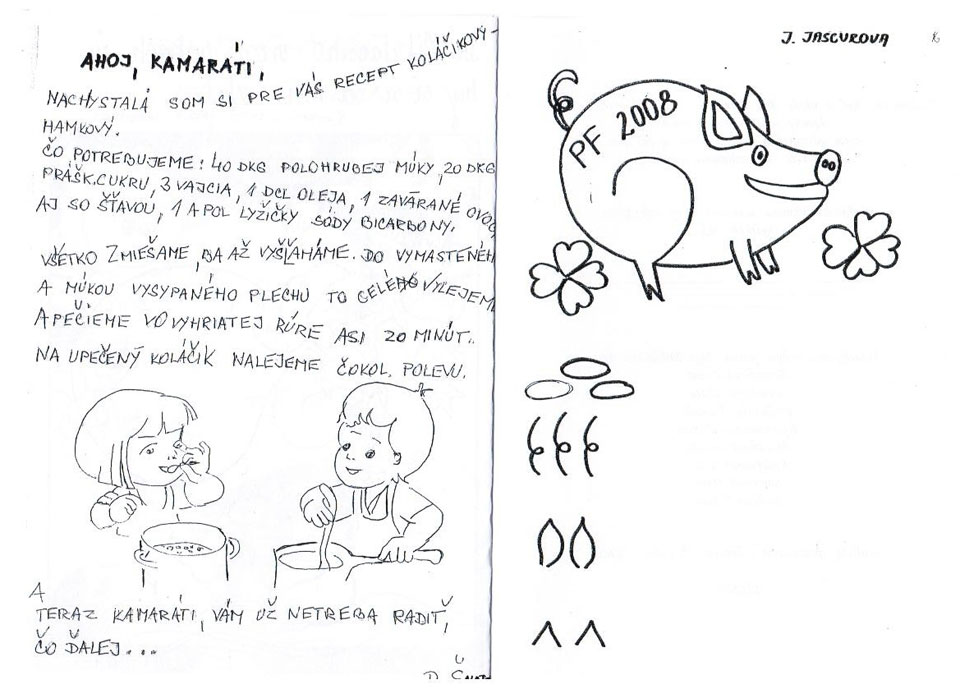 AHOJ, KAMARÁTI,
NACHYSTALA SOM SI PRE VÁS RECEPT KOLÁČIKOVÝ-
HAMKOVÝ.
ČO POTREBUJEME: 40 DKG POLOHRUBEJ MÚKY, 20 DKG
PRÁŠK.CUKRU, 3 VAJCIA, 1 DCL OLEJA, 1 ZAVÁRANÉ
AJ SO ŠŤAVOU, 1 A POL LYŽIČKY SÓDY BICARBONY.
VŠETKO ZMIEŠAME, BA AŽ VYŠĽAHÁME. DO VYMASTENÉH
A MÚKOU VYSYPANÉHO PLECHU TO CELÉ VYLEJEME
A PEČIEME VO VYHRIATEJ RÚRE ASI 20 MINÚT.
NA UPEČENÝ KOLÁČIK NALEJEME ČOKOL. POLEVU.
A
TERAZ KAMARÁTI, VÁM UŽ NETREBA RADIŤ,
ČO ĎALEJ...
J. JASCUROVA
PF 2008